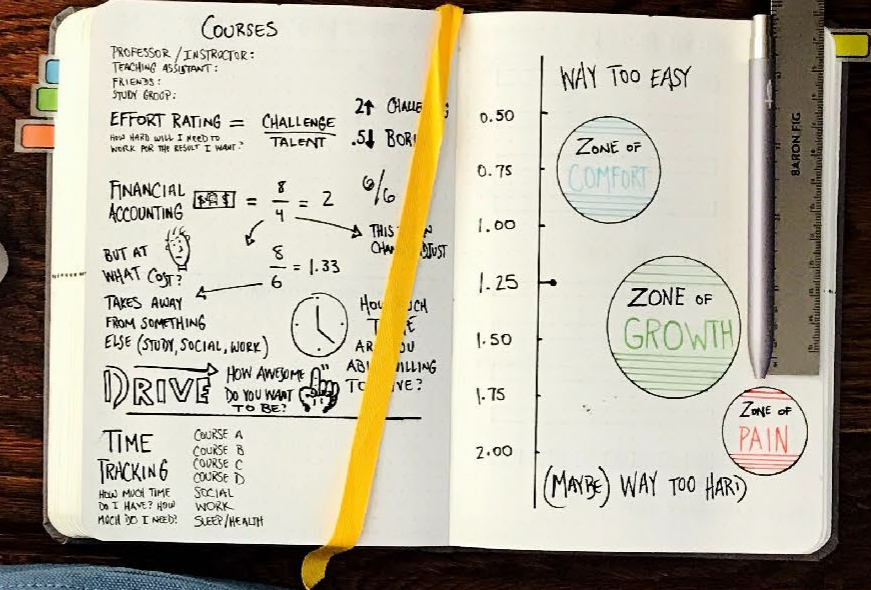 COURSES
PROFESSOR / INSTRUCTOR:
TEACHING ASSISTANT:
FRIENDS:
STUDY GROUP:
EFFORT RATING = CHALLENGE / TALENT
HOW HARD WILL I NEED TO
WORK FOR THE RESULT I WANT?
2↑
.5↓
FINANCIAL
ACCOUNTING = 8/4 = 2
6/6
THIS
BUT AT
WHAT COST?
8/6 = 1.33
TAKES AWAY
FROM SOMETHING
ELSE (STUDY, SOCIAL, WORK)
DRIVE
HOW AWESOME
DO YOU WANT
TO BE?
TIME
TRACKING
HOW MUCH TIME
DO I HAVE? HOW
MUCH DO I NEED?
COURSE A
COURSE B
COURSE C
COURSE D
SOCIAL
WORK
SLEEP/HEALTH
WAY TOO EASY
0.50
0.75
1.00
1.25
1.50
1.75
2.00
ZONE OF
COMFORT
ZONE OF
GROWTH
ZONE OF
PAIN
(MAYBE) WAY TOO HARD
BARON FIG